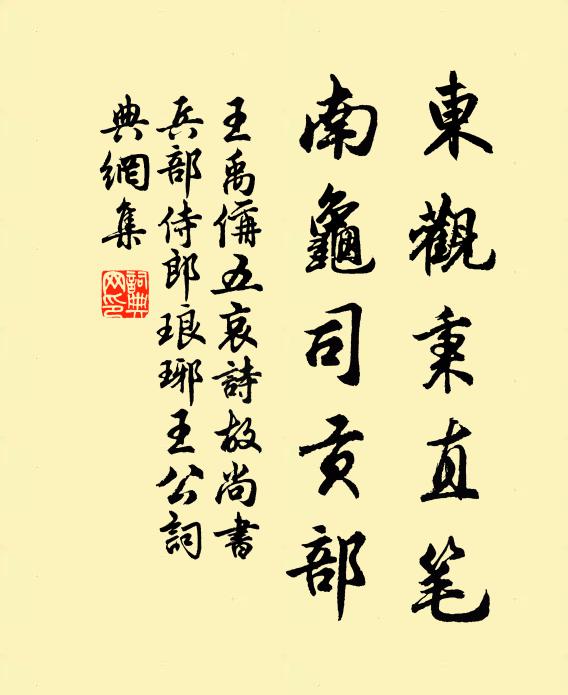 東觀秉直笔
南龜司贡部
王禹偁五哀詩故尚書
兵部侍郎琅琊王公詞
典網集
詞典网印